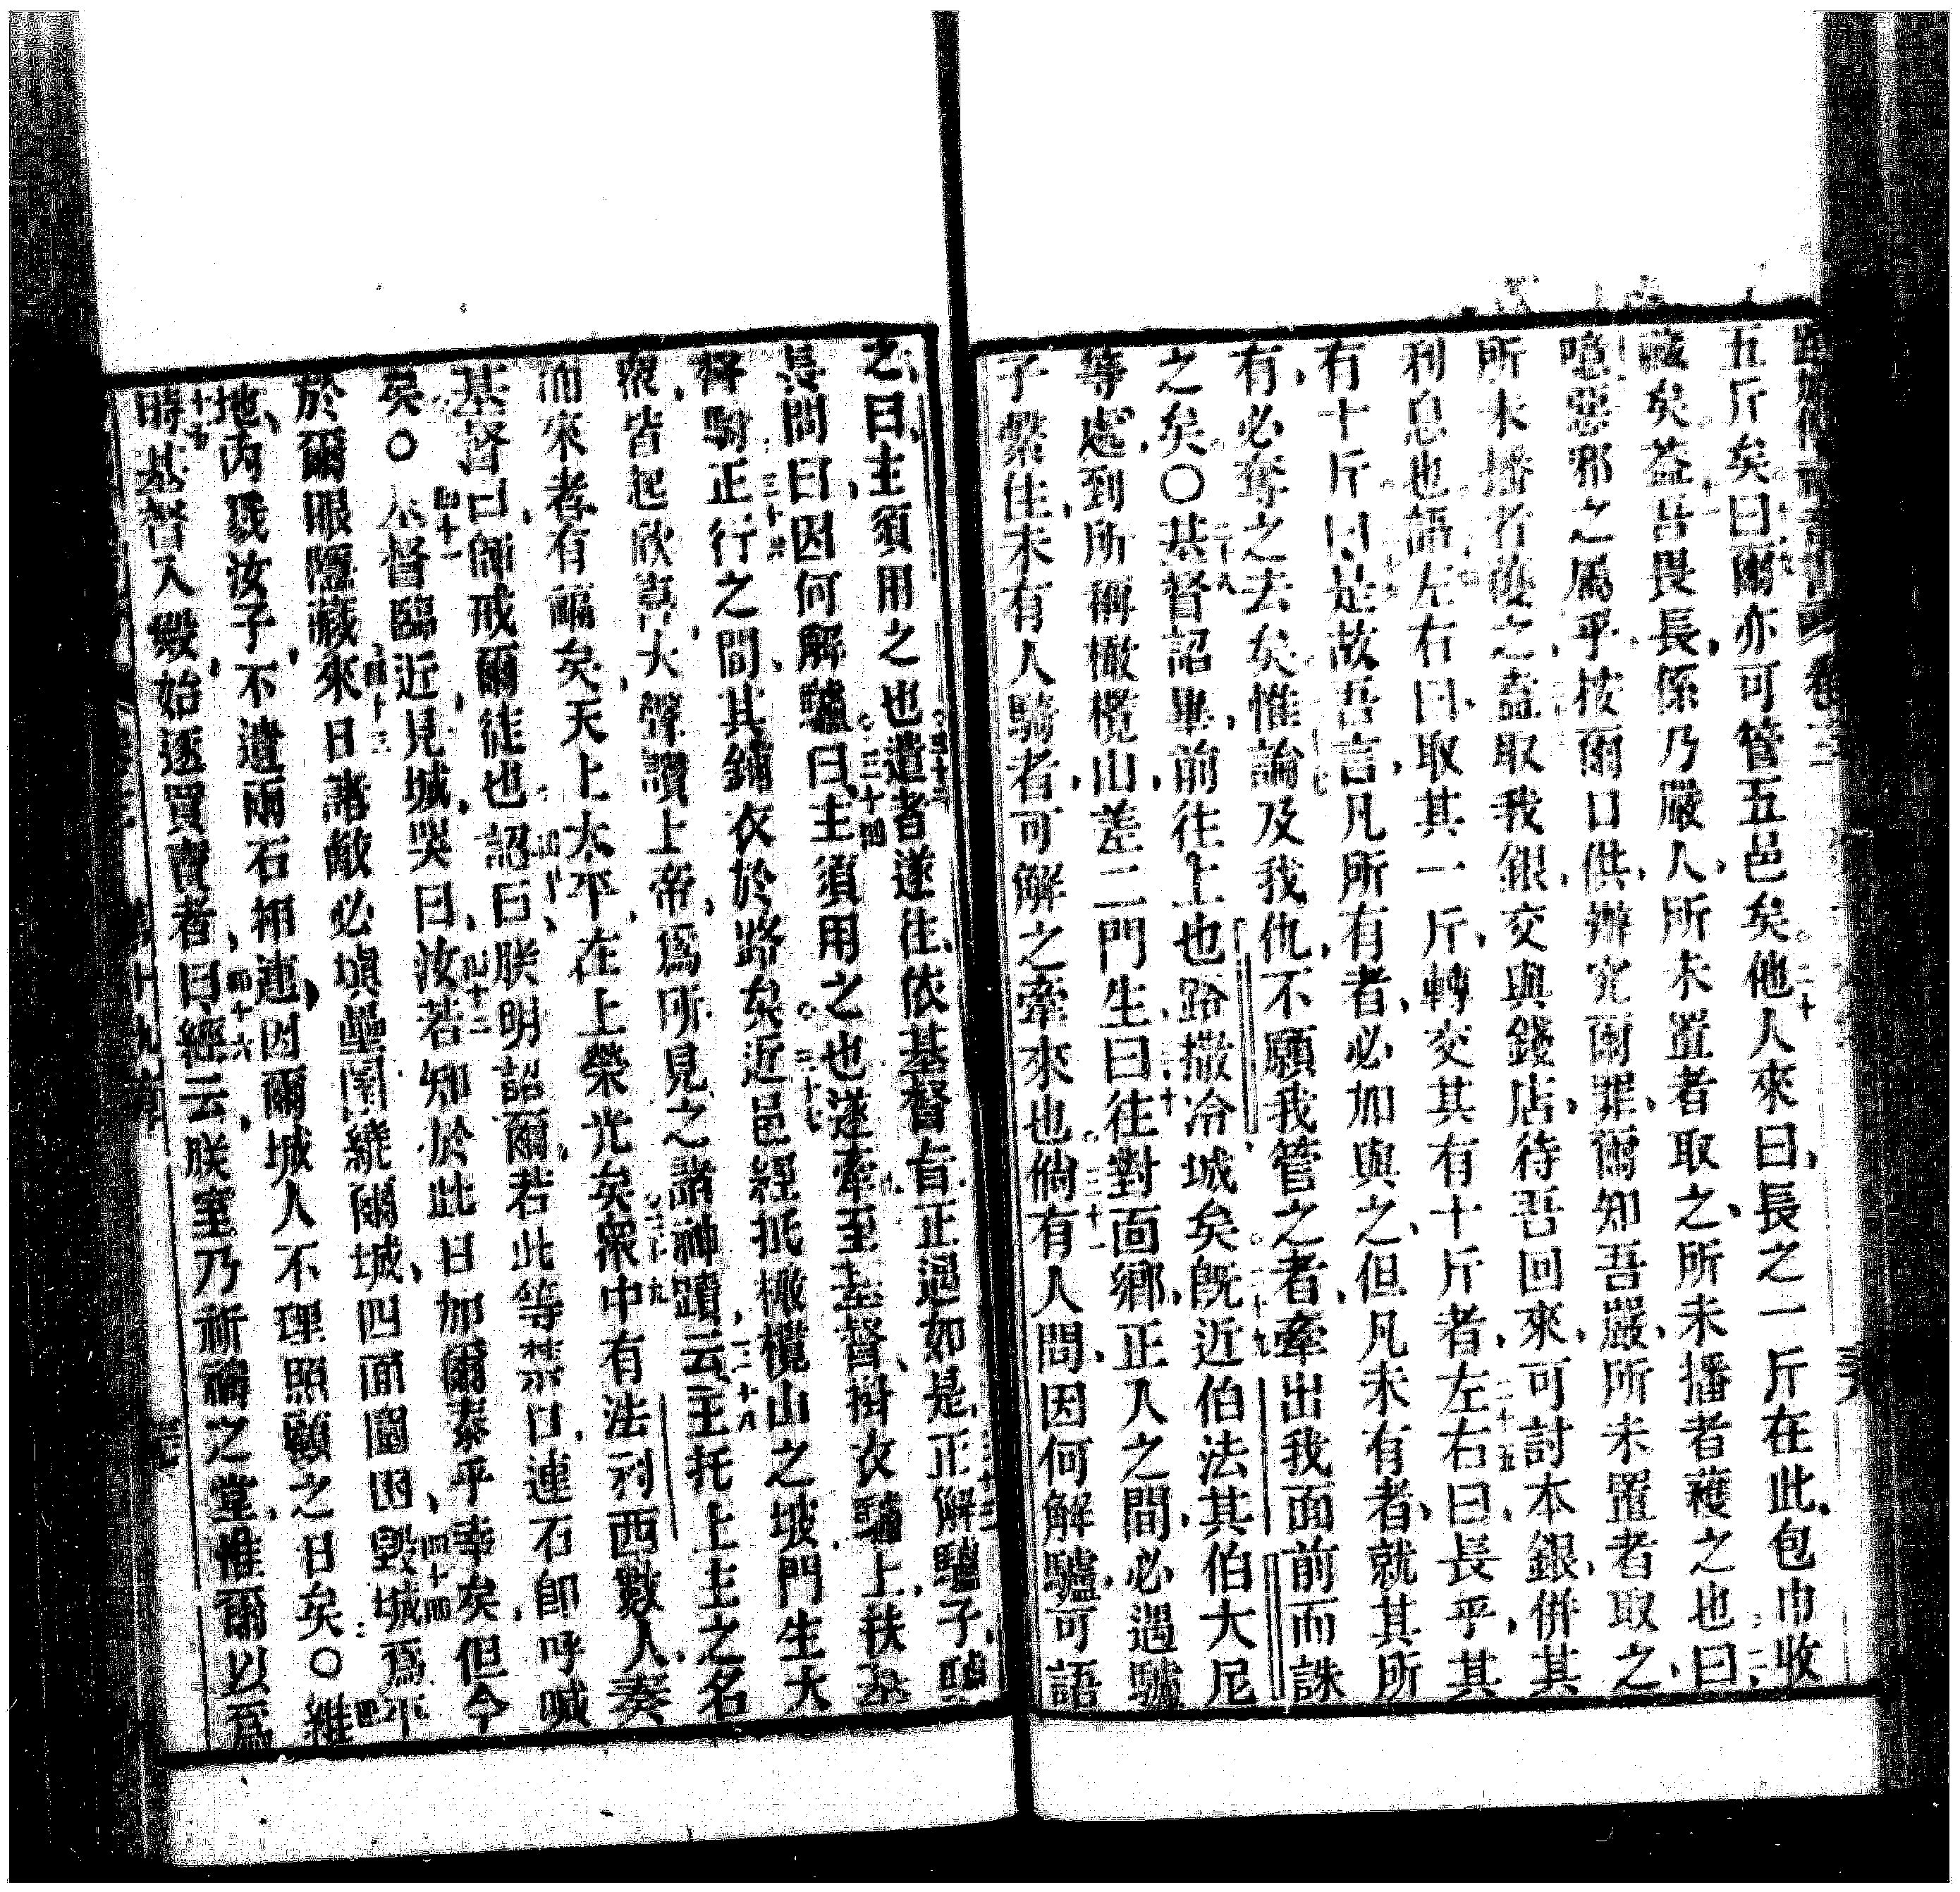 五斤矣曰爾亦可管五邑矣他人來曰長之一斤在此包巾收
藏矣益吾畏長係乃嚴人所未置者取之所未播者穫之也曰
噫惡邪之屬乎按爾口供辦究爾罪爾知吾嚴所未置者取之
所未播者穫之盍取我銀交與錢店待吾回來可討本銀併其
利息也語左右曰取其一斤轉交其有十斤者左右曰長乎其
有十斤曰是故吾言凡所有者必加與之但凡未有者就其所
有必奪之去矣惟論及我仇不願我管之者牽出我面前而誅
之矣〇基督詔畢前往上也路撒冷城矣旣近伯法其伯大尼
等處到所稱橄欖山差二門生曰往對面鄉正入之間必遇驢
子縶住未有人騎者可解之牽來也倘有人問因何解驢可語
之曰主須用之也遣者遂往依基督旨正遇如是正解驢子驢
長問曰因何解驢曰主須用之也遂牽至基督掛衣驢上扶基
督騎正行之間其鋪衣於路矣近邑經抵橄欖山之坡門生大
衆皆起欣喜大聲讚上帝爲所見之諸神蹟云主托上主之名
而來者有福矣天上太平在上榮光矣衆中有法利西數人奏
基督曰師戒爾徒也詔曰朕明詔爾若此等禁口連石卽呼喊
矣〇基督臨近見城哭曰汝若知於此日加爾泰平幸矣但今
於爾眼隱藏來日諸敵必塡壘圍繞爾城四面圍困毀城爲平
地內戮汝子不遺兩石相連因爾城人不理照顧之日矣〇維
時基督入殿始逐買賣者曰經云朕室乃祈禱之堂惟爾以爲